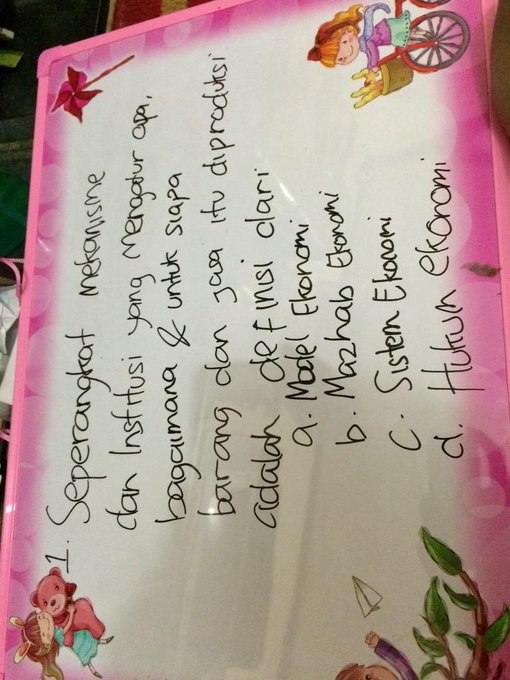 1. Seperangkat mekanisme
dan Institusi yang mengatur apa,
bagaimana & untuk siapa
barang dan jasa itu diproduksi
adalah definisi dari
a. Model Ekonomi
b. Mazhab Ekonomi
c. Sistem Ekonomi
d. Hukum ekonomi